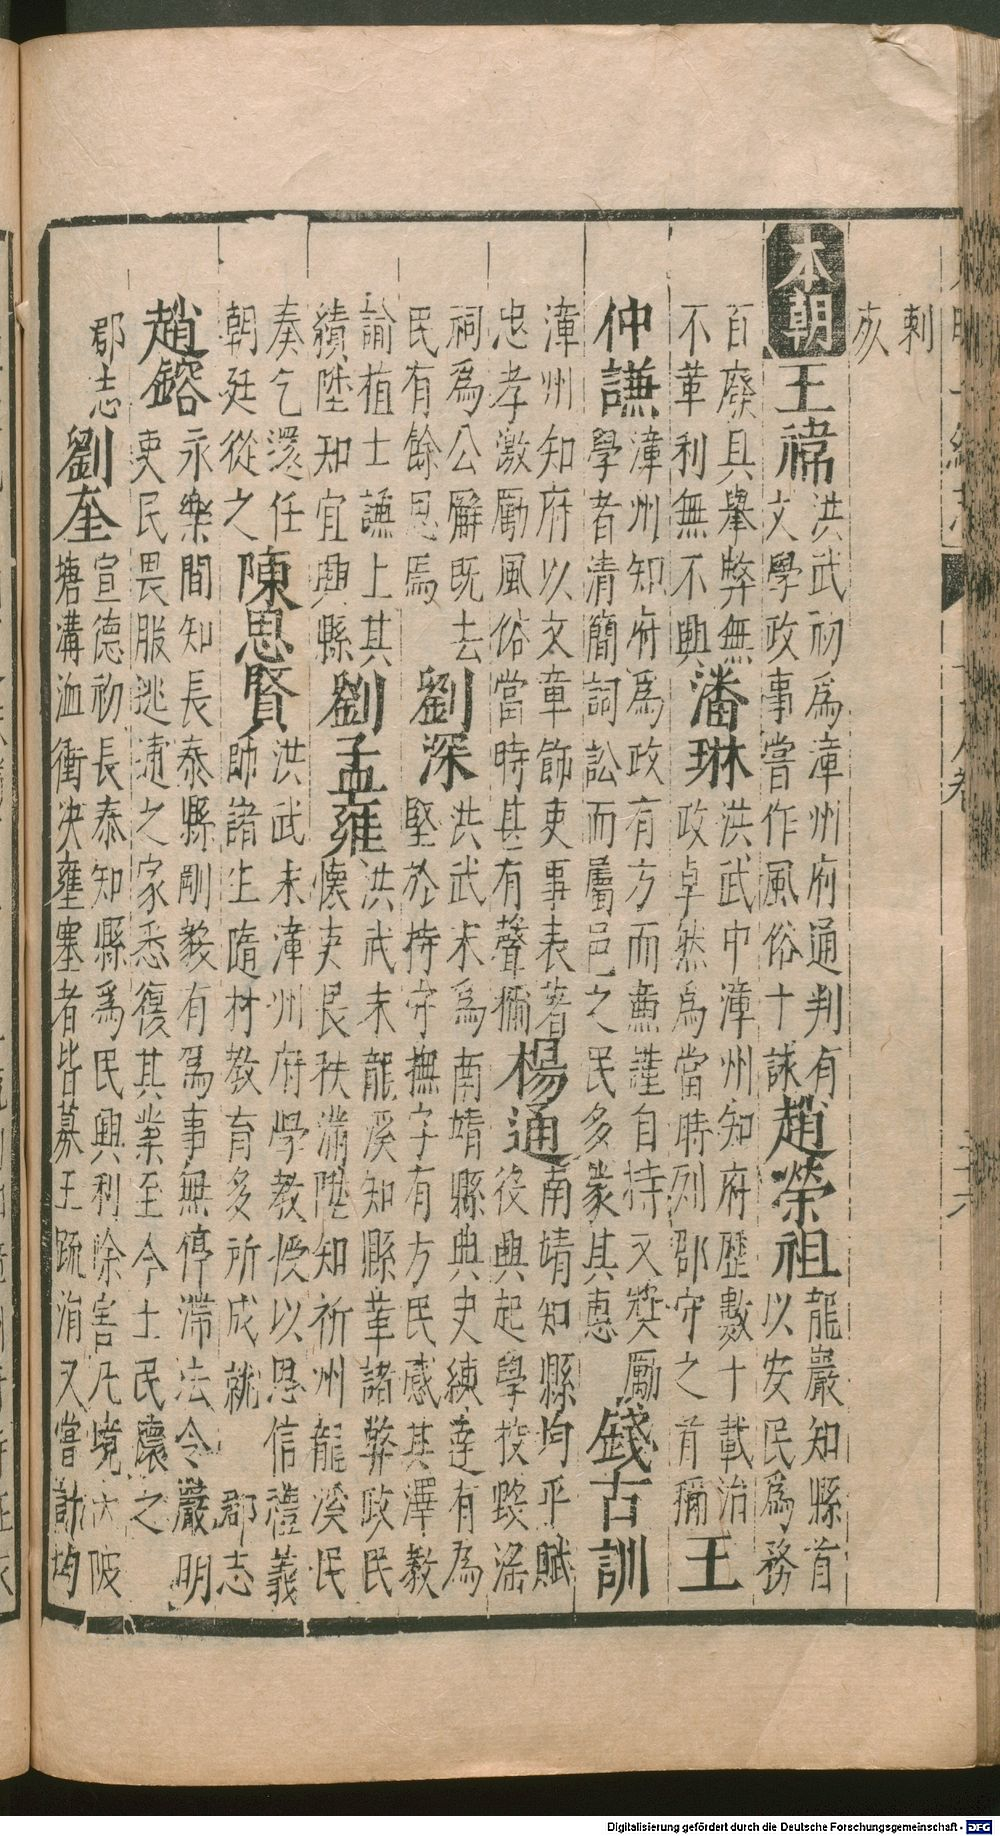 刺
亥
本朝王褘洪武初爲漳州府通判有趙榮祖龍巖知縣首
文學政事嘗作風俗十詠以安民爲務
百廢具擧弊無潘琳洪武中漳州知府歷數十載治王
不革利無不興政卓然爲當時列郡守之首稱
仲謙漳州知府爲政有方而廉謹自持又奬厲錢古訓
學者清簡詞訟而屬邑之民多蒙其惠
漳州知府以文章飾吏事表著楊通南靖知縣均平賦
忠孝激厲風俗當時甚有聲稱役興起學校毁淫
祠爲公廨既去劉深洪武末爲南靖縣典史練達有爲
民有餘思焉堅於持守撫字有方民感其澤教
諭植士謙上其劉孟雍洪武末龍溪知縣革諸弊政民
績陞知宜興縣懷吏艮秩滿陞知祈州龍溪民
奏乞還任陳思賢洪武末漳州府學教授以恩信禮義
朝廷從之師諸生隨材教育多所成就郡志
趙鎔永樂間知長泰縣剛毅有爲事無停滯法令嚴明
吏民畏服逃逋之家悉復其業至今士民懷之
郡志劉奎宣德初長泰知縣爲民興利除害凡境内陂
塘溝洫衝决壅塞者皆募工疏濬又嘗計均
Digitalisierung gefördert durch die Deutsche Forschungsgemeinschaft - DFG